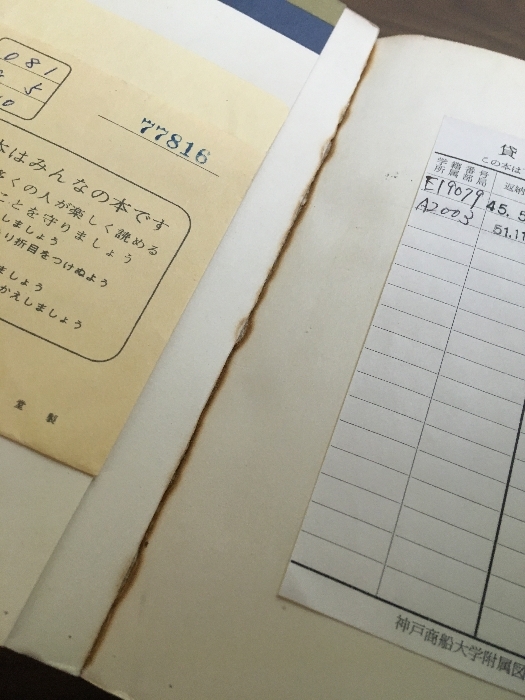 081
5
0
77816
本はみんなの本です
多くの人が楽しく読める
ことを守りましょう
しましょう
り折目をつけぬよう
ましょう
かえしましょう
堂 製
貸
この本は
学籍番号
所属部局
返納
E19079
45. 5
A2003
51.11
神戸商船大学附属図